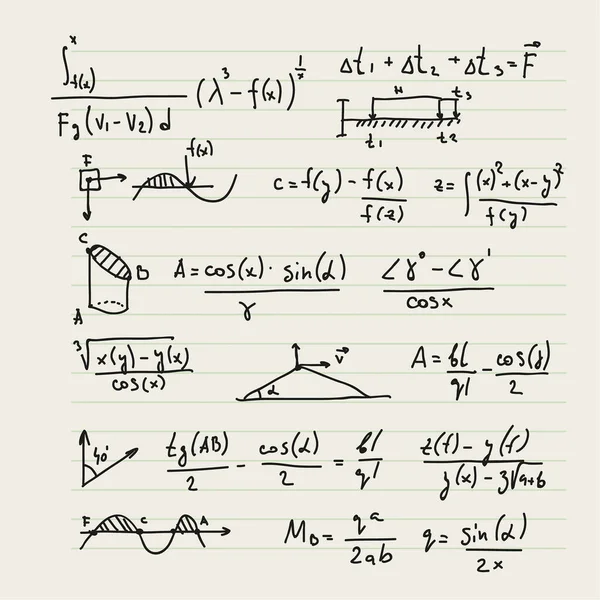 ∫ˣ_f(x) / Fg(V₁-V₂)d (λ³-f(x))^(1/x) Δt₁ + Δt₂ + Δt₃ = F⃗
H t₃
t₁ t₂
F f(x) c = f(y) - f(x)/f(z) z = ∫ (x)²+(x-y)² / f(y)
C B A A = cos(x)· sin(α) / γ ∠γ° - ∠γ' / cosx
³√x(y) - y(x) / cos(x) α v⃗ A = bl/ql - cos(γ)/2
40° tg(AB)/2 - cos(α)/2 = bl/ql z(f) - y(f) / y(x) - 3√a+b
F C A M₀ = qᵃ/2ab q = sin(α)/2x